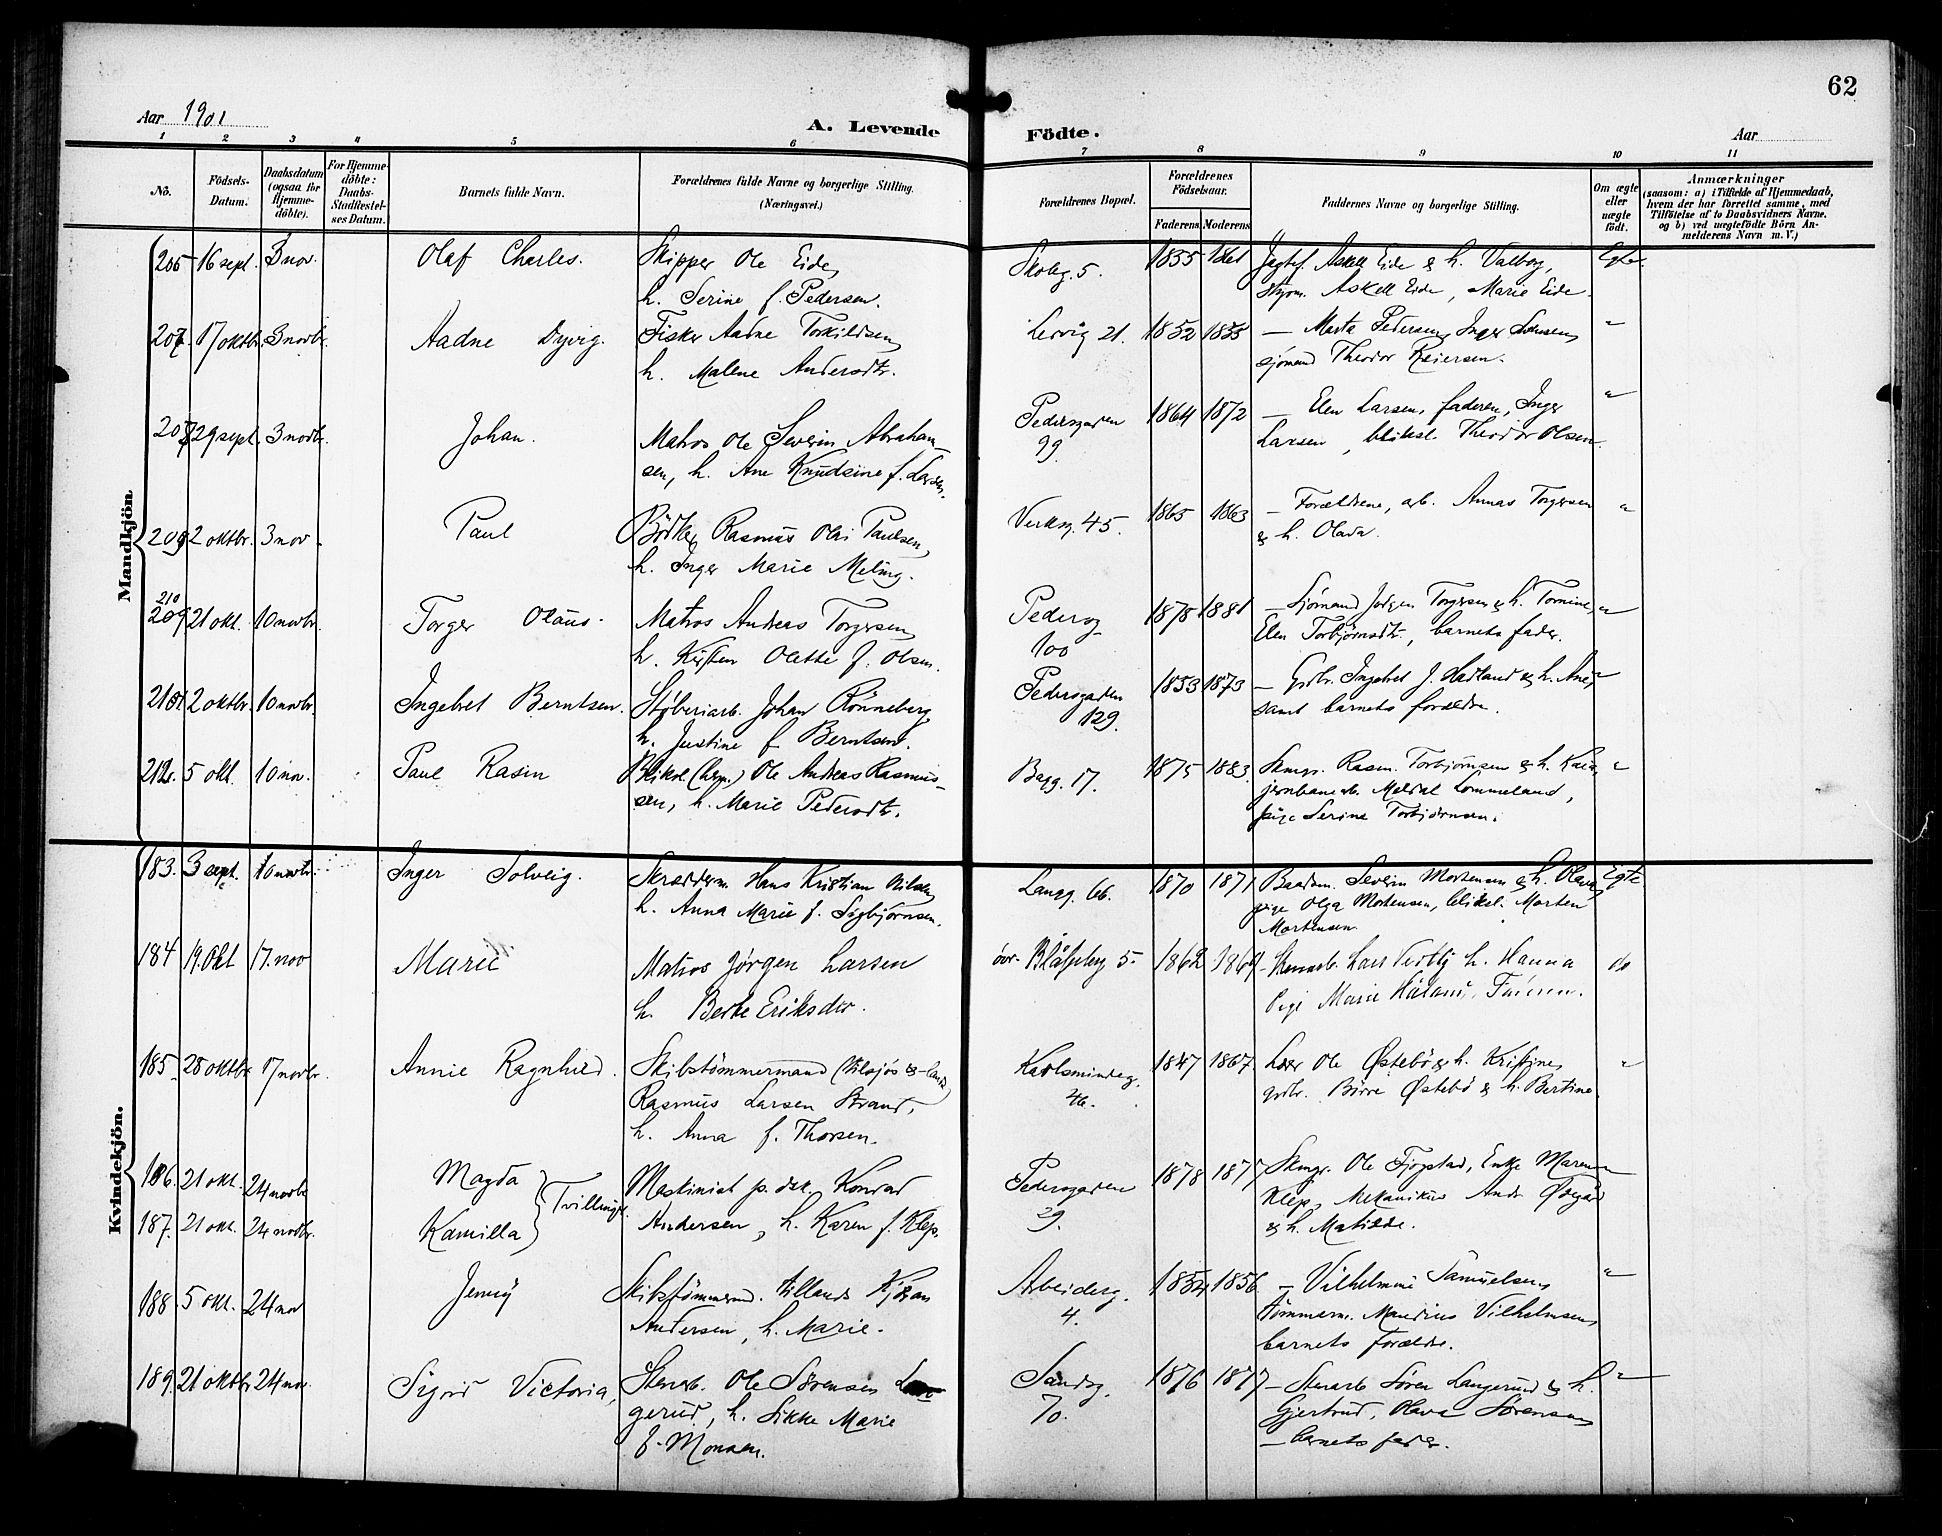 62
Aar 1901
A. Levende Födte.
Aar
1 2 3 4 5 6 7 8 9 10 11
Nô.
Födsels-Datum.
Daabsdatum (ogsaa for Hjemmedöbte).
For Hjemmedöbte: Daabs-Stadfæstelses Datum.
Barnets fulde Navn.
Forældrenes fulde Navne og borgerlige Stilling. (Næringsvei.)
Forældrenes Bopæl.
Forældrenes Födselsaar.
Faderens Moderens
Faddernes Navne og borgerlige Stilling.
Om ægte eller uægte födt.
Anmærkninger
(saasom: a) i Tilfælde af Hjemmedaab, hvem der har forrettet samme, med Tilföielse af to Daabsvidners Navne. og b) ved uægtefödte Börn Anmelderens Navn m. V.)
Mandkjön
16 sept. 3 nov. Olaf Charles. Skipper Ole Eide,
h. Serine f. Pedersen.
Skoleg. 5. 1855 1861 Askell Eide & h. Valborg,
Askell Eide, Marie Eide.
207. 17 oktbr. 3 novbr. Aadne Dyvig. Fisker Aadne Torkildsen,
h. Malene Andersdtr.
Lervig 21. 1852 1855 — Marta Pedersen, Inger
sjömand Theodor Reiersen. "
208 29 sept. 3 novbr. Johan. Matros Ole Severin Abraham-
sen, h. Ane Knudsine f. Larsen.
Pedersgaden
99. 1864 1872 — Elen Larsen, faderen, Inger
Larsen, bliksl. Theodor Olsen. "
209 2 oktbr. 3 nov. Paul Bödker Rasmus Olai Paulsen,
h. Inger Marie Meling.
Verksg. 45. 1865 1863 — Forældrene, arb. Torgersen
& h. Olava. "
210
209 21 okt. 10 novbr. Torger Olaus. Matros Andreas Torgersen,
h. Kirsten Olette f. Olsen.
Pedersg
100 1878 1881 — Sjömand Torgersen & h. Tomine,
Elen Torbjörnsdtr., barnets fader. "
2 oktbr. 10 novbr. Ingebret Berntsen. Støberiarb. Johan Rönneberg
h. Justine f. Berntsen.
Pedersgaden
129. 1853 1873 — Grdbr. Ingebret J. Hadland & h. Ane,
samt barnets forældre. "
212. 5 okt. 10 nov. Paul Rasin Ole Andreas Rasmus-
sen, h. Marie Pedersdtr.
Bagg. 17. 1875 1883. Rasm. Torbjörnsen & h.
Lommeland,
pige Serine Torbjörnsen. "
Kvindekjön.
183. 3 sept. 10 novbr. Inger Solveig. Skrædderm. Hans Kristian Nilsen,
h. Anna Marie f. Sigbjörnsen.
Langg. 66. 1870 1871 Baadsm. Severin Mortensen & h. Olava,
pige Olga Mortensen, bliksl. Morten
Mortensen. Egte
184 19. Okt 17. nov Marie Matros Jörgen Larsen
h. Berte Eriksdtr.
övr. Blåsbrg 5. 1862 Lars h. Hanna
Pige Marie Håland, Faderen. do
185. 28 oktbr. 17 novbr. Annie Ragnhild. Skibstömmermand
Rasmus Larsen Strand,
h. Anna f. Thorsen.
Karlsmindeg.
46. 1847 1867. Ole Østebö & h. Kristine,
grdbr. Börre Østebö & h. Bertine. "
186. 21 okt. 24 novbr Magda } Tvillinger. Maskinist p. dsk. Konrad
187. 21 okt. 24 novbr. Kamilla Andersen, h. Karen f. Klep.
Pedersgaden
29. 1878 1877 Skmgr. Ole Fjogstad, Enke Maren
Klep, Mekanikus Andr.
& h. Matilde.
188. 5 okt. 24 nov Jenny Skibstömmermd. Kjöran
Andersen, h. Marie.
Arbeiderg.
4. 1854 1856 — Vilhelmine Samuelsen,
tömmerm. Maurius Vilhelmsen,
barnets forældre. "
189. 21 oktbr 24 nov. Sigrid Victoria, Stenarb. Ole Sörensen Lan-
gerud, h. Sikke Marie
f. Monsen.
Sandsg.
70. 1876 1877 — Stenarb Sören Langerud & h.
Gjertrud, Olava Sörensen,
— barnets fader. "